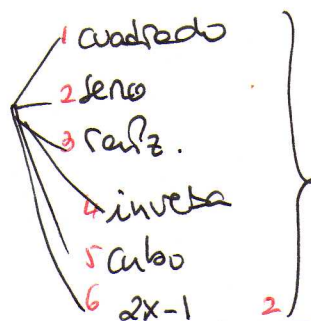 1 cuadrado
2 seno
3 raíz.
4 inversa
5 cubo
6 2x-1 2